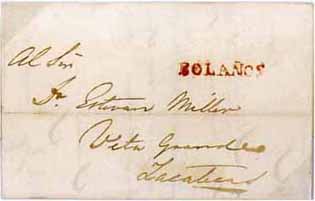 Al Sor
BOLAÑOS
Dn Estevan Miller
Veta Grande
Zacatecas